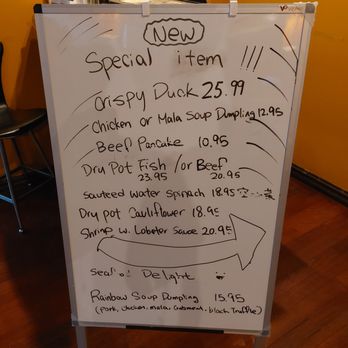 New
Special item !!!
Crispy Duck 25.99
Chicken or Mala Soup Dumpling 12.95
Beef Pancake 10.95
Dry Pot Fish / or Beef
23.95 20.95
sauteed water spinach 18.95 空心菜
Dry pot Cauliflower 18.95
Shrimp w. Lobster Sauce 20.95
Delight
Rainbow Soup Dumpling 15.95
(pork, chicken, mala, black Truffle)